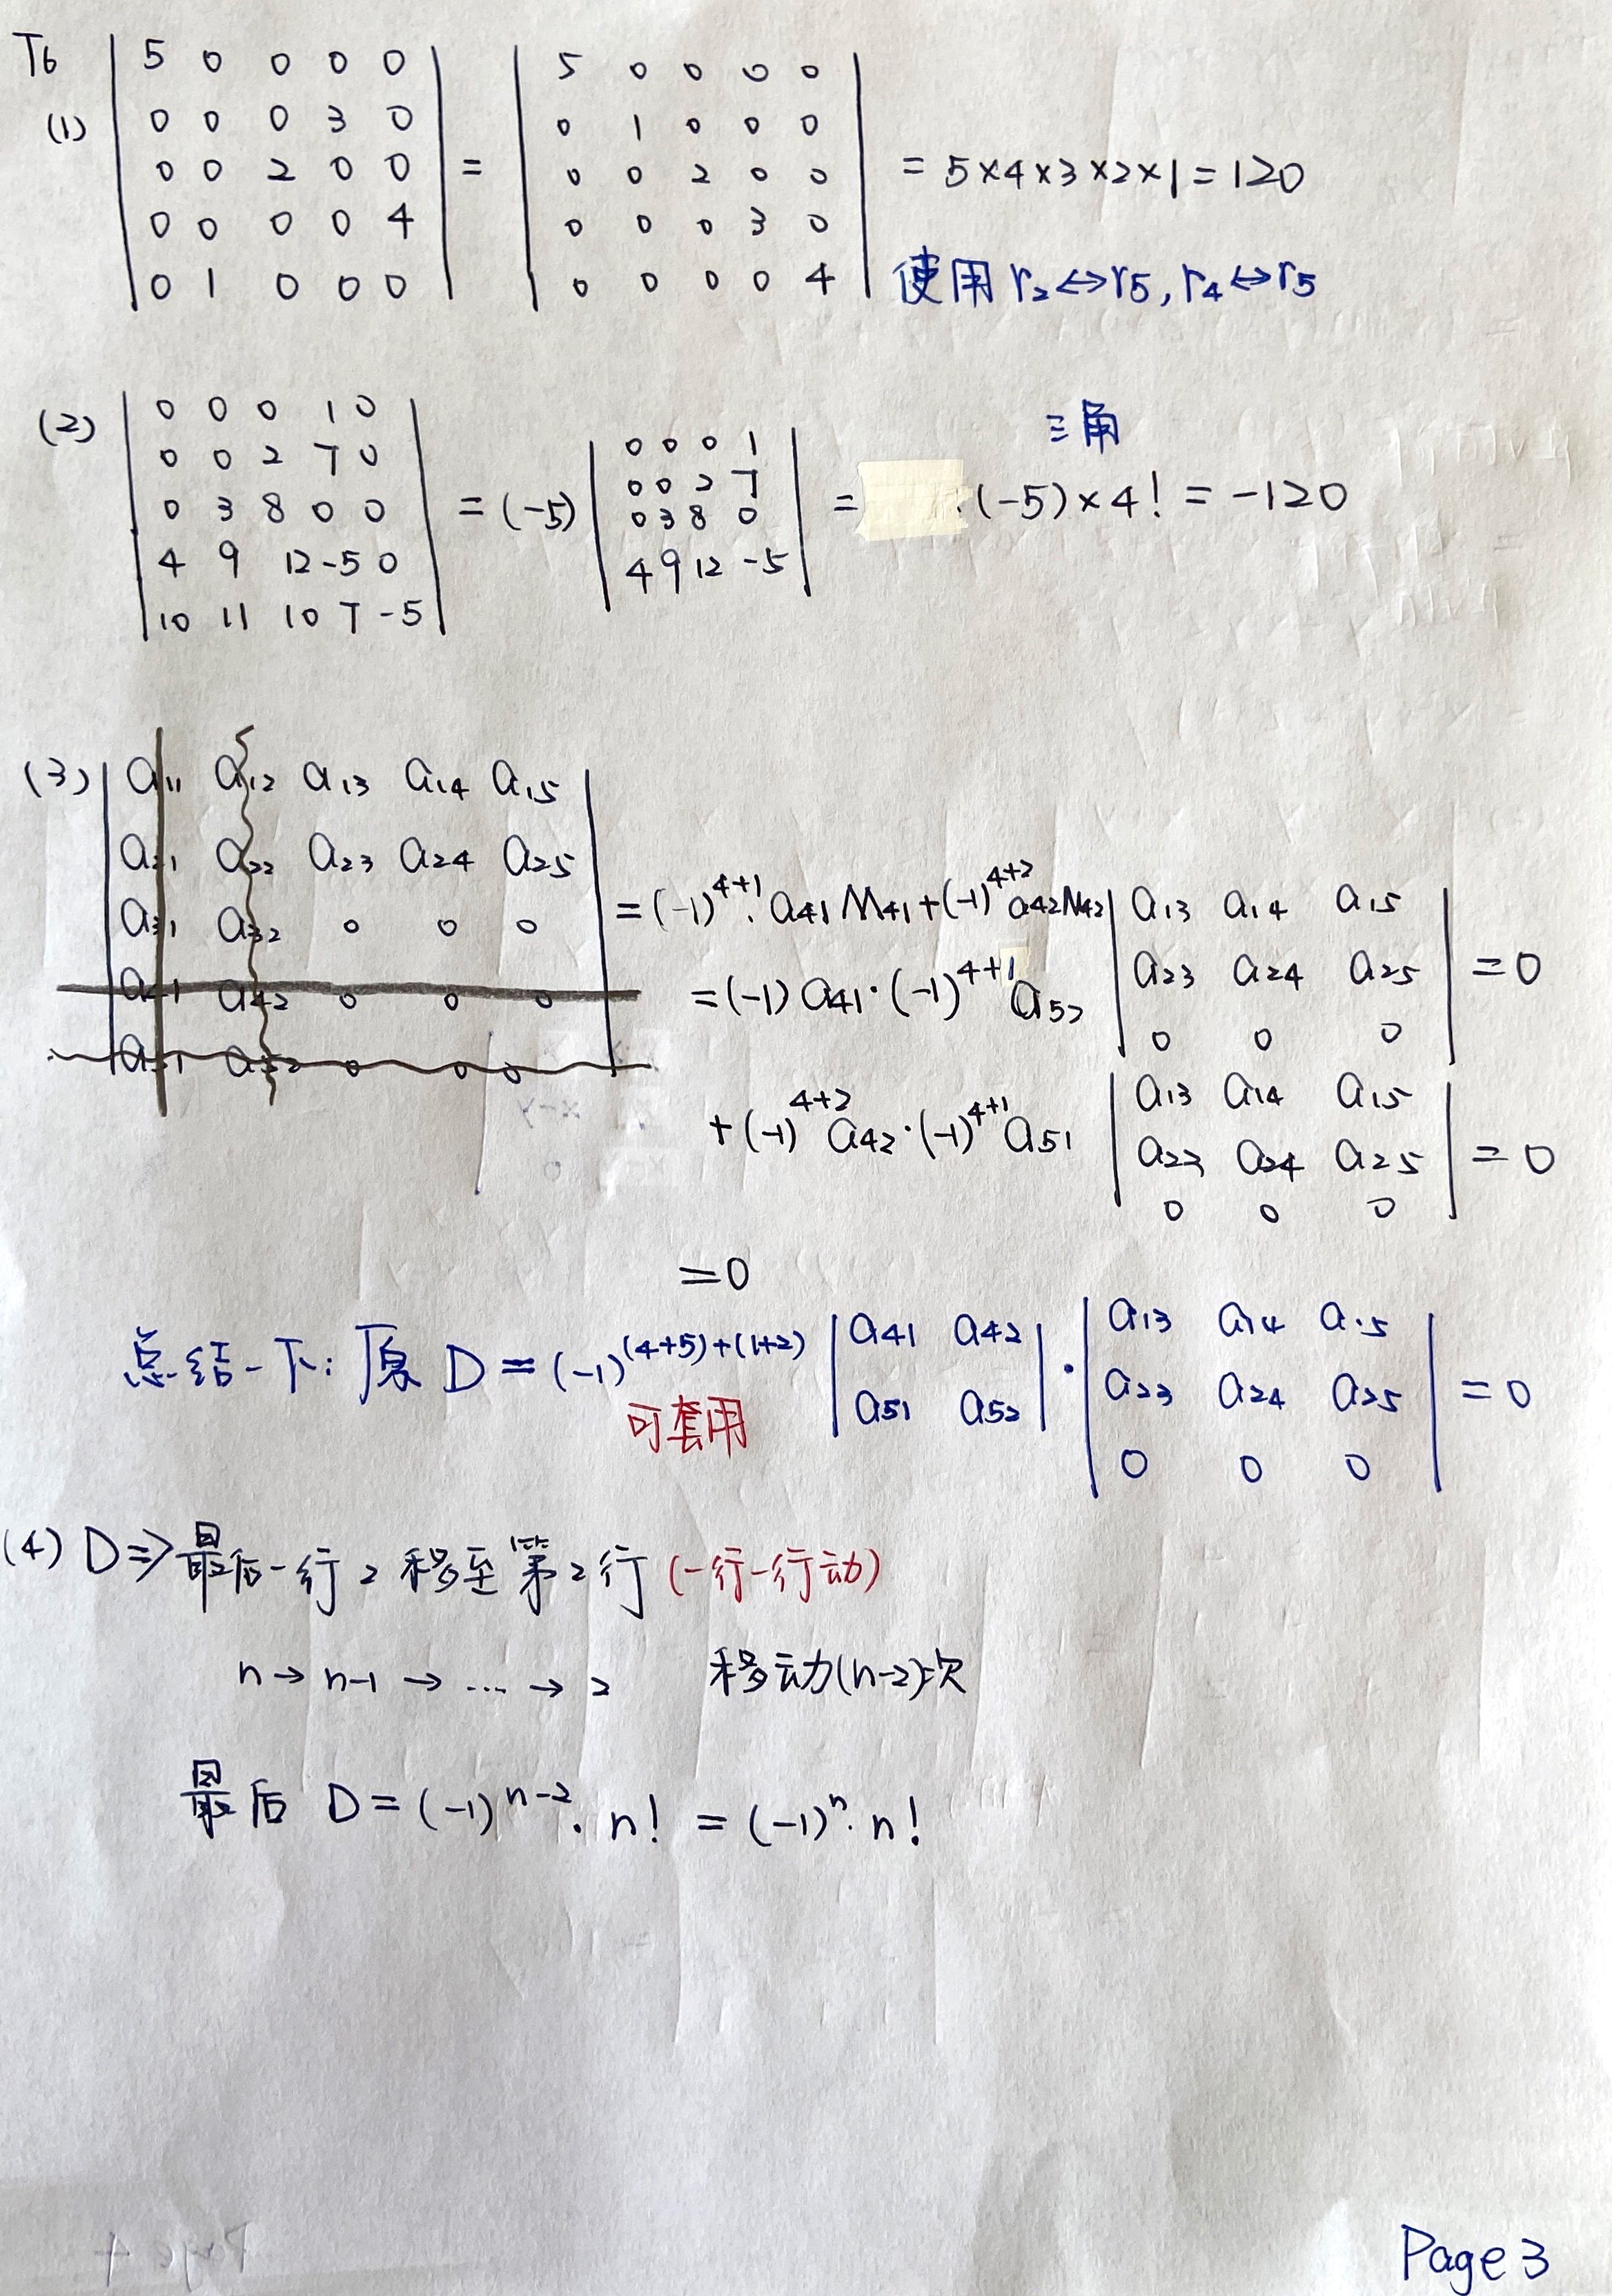 T6
(1) | 5 0 0 0 0 | = | 5 0 0 0 0 |
| 0 0 0 3 0 | | 0 1 0 0 0 |
| 0 0 2 0 0 | | 0 0 2 0 0 | = 5×4×3×2×1=120
| 0 0 0 0 4 | | 0 0 0 3 0 |
| 0 1 0 0 0 | | 0 0 0 0 4 | 使用 r₂↔r₅, r₄↔r₅
(2) | 0 0 0 1 0 |
| 0 0 2 7 0 | | 0 0 0 1 | 三角
| 0 3 8 0 0 | = (-5) | 0 0 2 7 | = (-5)×4! = -120
| 4 9 12 -5 0 | | 0 3 8 0 |
| 10 11 10 7 -5 | | 4 9 12 -5 |
(3) | a₁₁ a₁₂ a₁₃ a₁₄ a₁₅ |
| a₂₁ a₂₂ a₂₃ a₂₄ a₂₅ |
| a₃₁ a₃₂ 0 0 0 |
| a₄₁ a₄₂ 0 0 0 |
| a₅₁ a₅₂ 0 0 0 |
= (-1)⁴⁺¹· a₄₁ M₄₁ + (-1)⁴⁺² a₄₂ M₄₂
= (-1) a₄₁·(-1)⁴⁺¹ a₅₂ | a₁₃ a₁₄ a₁₅ |
| a₂₃ a₂₄ a₂₅ | = 0
| 0 0 0 |
+ (-1)⁴⁺² a₄₂·(-1)⁴⁺¹ a₅₁ | a₁₃ a₁₄ a₁₅ |
| a₂₃ a₂₄ a₂₅ | = 0
| 0 0 0 |
=0
总结一下: 原 D = (-1)⁽⁴⁺⁵⁾⁺⁽¹⁺²⁾ | a₄₁ a₄₂ | · | a₁₃ a₁₄ a₁₅ |
可套用 | a₅₁ a₅₂ | | a₂₃ a₂₄ a₂₅ | = 0
| 0 0 0 |
(4) D⇒最后一行2移至第2行 (一行一行动)
n → n-1 → ... → 2 移动(n-2)次
最后 D = (-1)ⁿ⁻²· n! = (-1)ⁿ· n!
Page 3